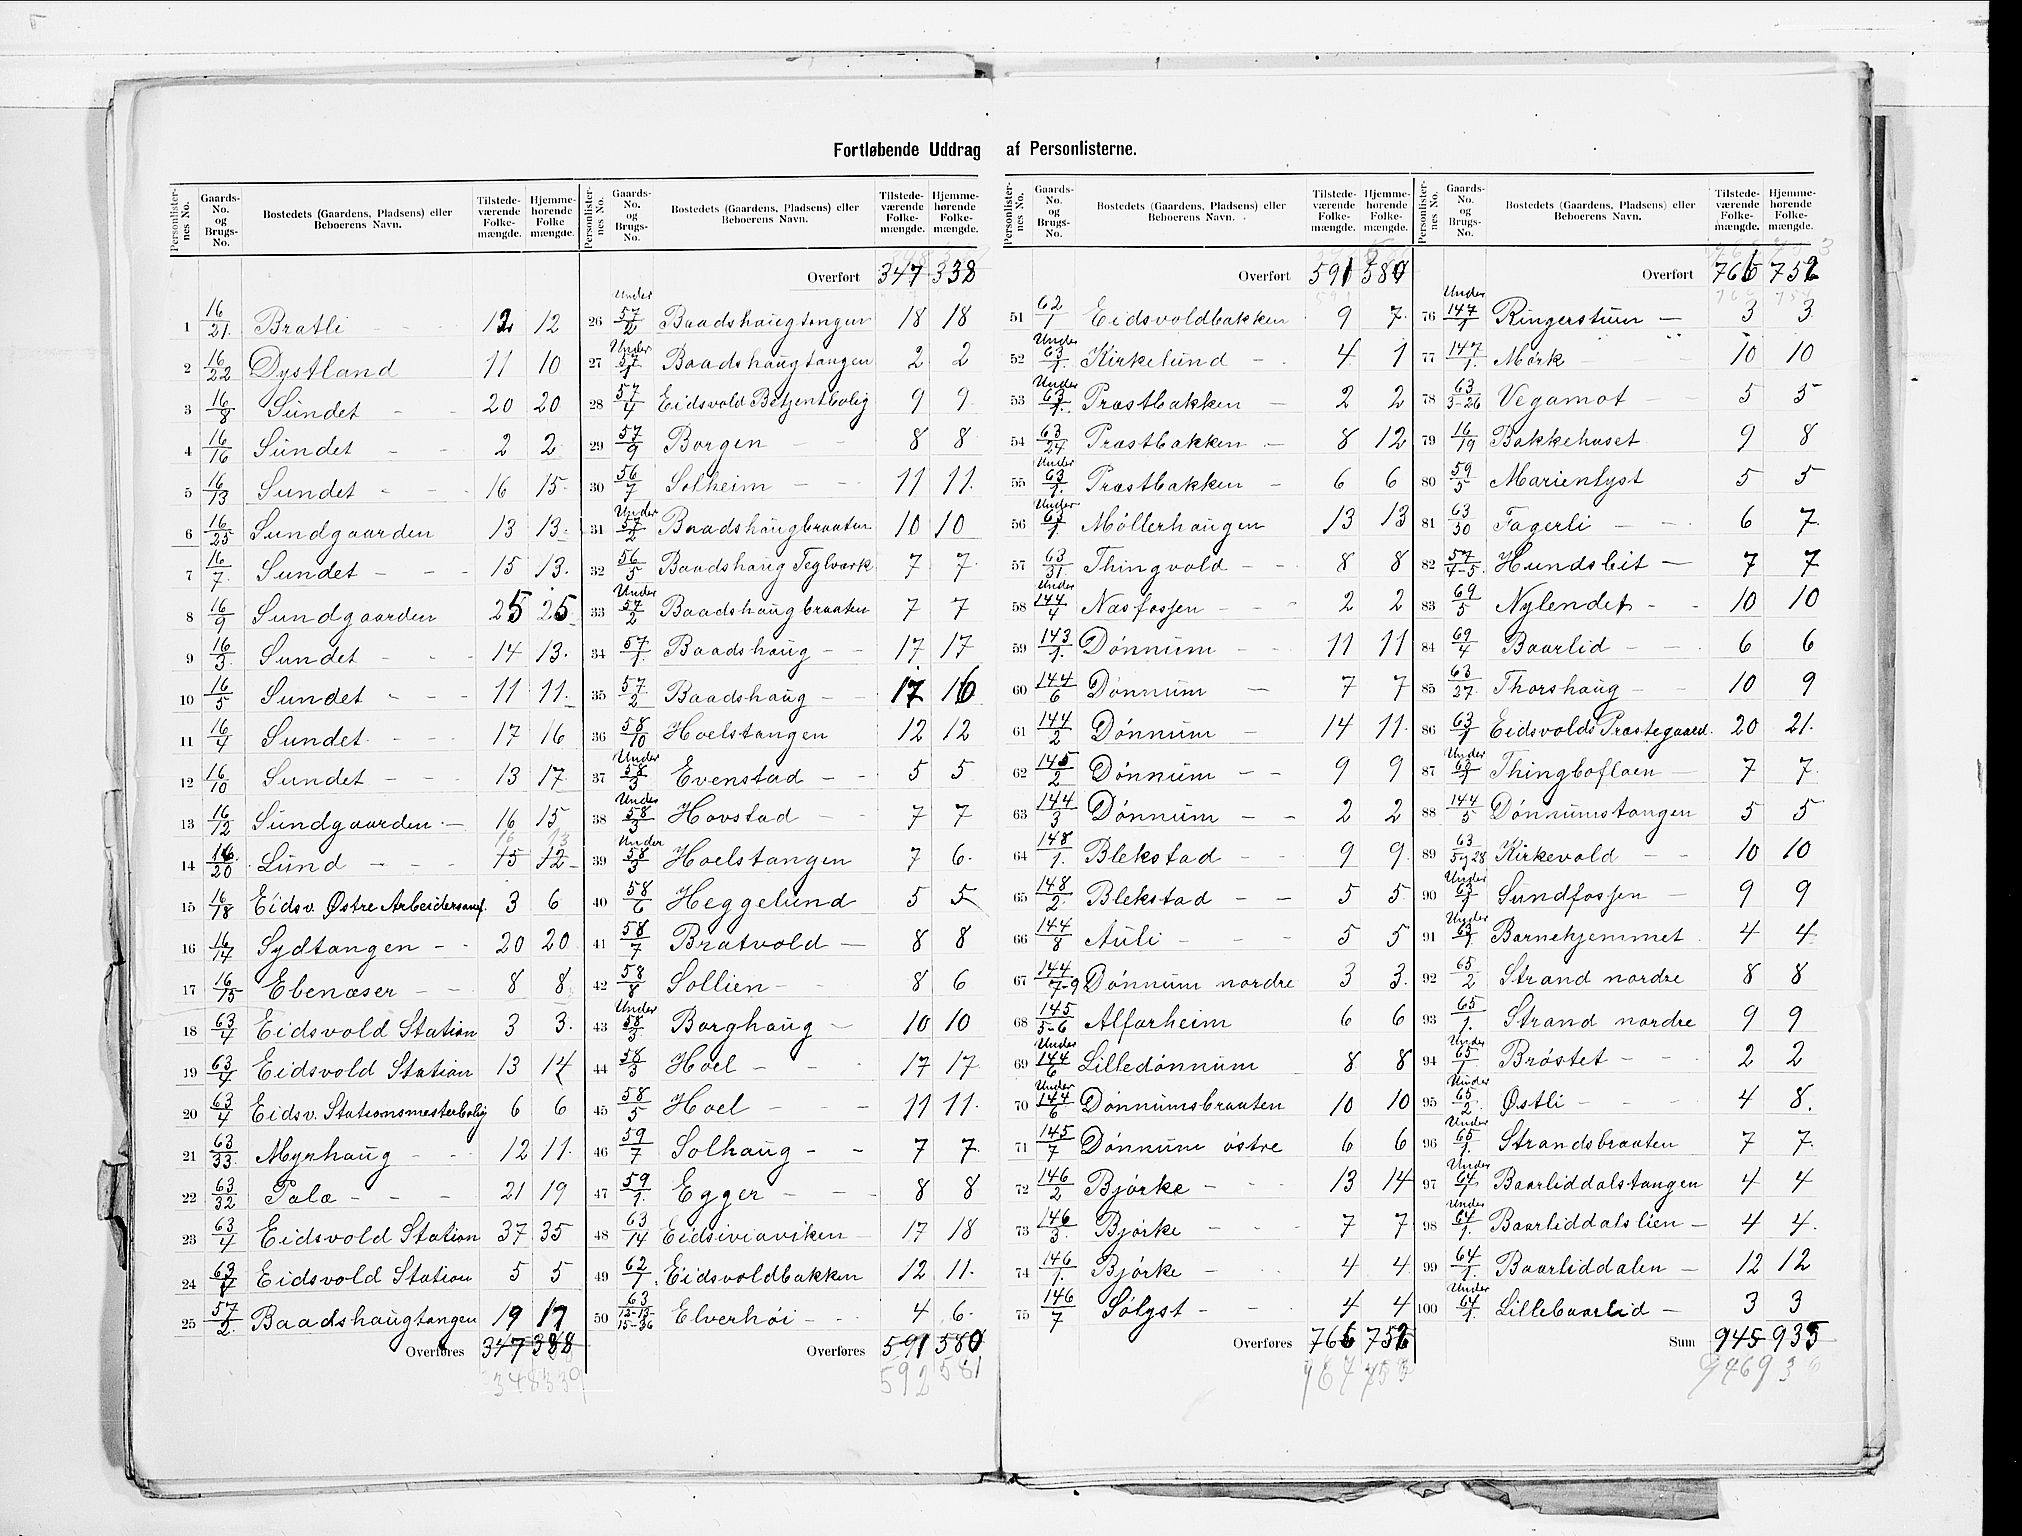 Fortløbende Uddrag af Personlisterne.
Personlister-nes No. | Gaards-No. og Brugs-No. | Bostedets (Gaardens, Pladsens) eller Beboerens Navn. | Tilstede-værende Folke-mængde. | Hjemme-hørende Folke mængde.
1 16/21 Bratli 12 12
2 16/22 Dystland 11 10
3 16/8 Sundet 20 20
4 16/16 Sundet 2 2
5 16/13 Sundet 16 15
6 16/25 Sundgaarden 13 13
7 16/7 Sundet 15 13
8 16/9 Sundgaarden 25 25
9 16/3 Sundet 14 13
10 16/5 Sundet 11 11
11 16/4 Sundet 17 16
12 16/10 Sundet 13 17
13 16/12 Sundgaarden 16 15
16 13
14 16/20 Lund 15 12
15 16/18 Eidsv. Østre Arbeidersamf. 3 6
16 16/14 Sydtangen 20 20
17 16/15 Ebenæser 8 8
18 63/4 Eidsvold Station 3 3
19 63/4 Eidsvold Station 13 14
20 63/4 Eidsv. Stationsmesterbolig 6 6
21 63/33 Myrhaug 12 11
22 63/32 Palæ 21 19
23 63/4 Eidsvold Station 37 35
24 63/4 Eidsvold Station 5 5
25 57/2 Baadshaugtangen 19 17
Overføres 347 338
348 339
Personlister-nes No. | Gaards-No. og Brugs-No. | Bostedets (Gaardens, Pladsens) eller Beboerens Navn. | Tilstede-værende Folke-mængde. | Hjemme-hørende Folke-mængde.
Overført 347 338
26 Under 57/2 Baadshaugtangen 18 18
27 Under 57/1 Baadshaugtangen 2 2
28 57/4 Eidsvold Betjentbolig 9 9
29 57/9 Borgen 8 8
30 56/7 Solheim 11 11
31 Under 57/2 Baadshaugbraaten 10 10
32 56/5 Baadshaug Teglværk 7 7
33 Under 57/2 Baadshaugbraaten 7 7
34 57/1 Baadshaug 17 17
35 57/2 Baadshaug 17 16
36 58/10 Hoelstangen 12 12
37 Under 58/3 Evenstad 5 5
38 Under 58/3 Hovstad 7 7
39 Under 58/3 Hoelstangen 7 6
40 58/6 Heggelund 5 5
41 58/7 Bratvold 8 8
42 58/8 Sollien 8 6
43 Under 58/3 Borghaug 10 10
44 58/3 Hoel 17 17
45 58/5 Hoel 11 11
46 59/7 Solhaug 7 7
47 59/1 Egger 8 8
48 63/14 Eidsiviaviken 17 18
49 62/1 Eidsvoldbakken 12 11
50 63/12-13-15-36 Elverhöi 4 6
Overføres 591 580
592 581
Personlister-nes No. | Gaards-No. og Brugs-No. | Bostedets (Gaardens, Pladsens) eller Beboerens Navn. | Tilstede-værende Folke-mængde. | Hjemme-hørende Folke-mængde.
Overført 591 580
51 62/1 Eidsvoldbakken 9 7
52 Under 63/1 Kirkelund 4 1
53 Under 63/1 Præstbakken 2 2
54 63/24 Præstbakken 8 12
55 Under 63/1 Præstbakken 6 6
56 Under 63/1 Møllerhaugen 13 13
57 63/31 Thingvold 8 8
58 Under 144/4 Næsfossen 2 2
59 143/1 Dønnum 11 11
60 144/6 Dønnum 7 7
61 144/2 Dønnum 14 11
62 145/2 Dønnum 9 9
63 144/3 Dønnum 2 2
64 148/1 Blekstad 9 9
65 148/2 Blekstad 5 5
66 144/8 Auli 5 5
67 144/7-9 Dønnum nordre 3 3
68 145/5-6 Alfarheim 6 6
69 Under 144/6 Lilledønnum 8 8
70 Under 144/6 Dønnumsbraaten 10 10
71 145/7 Dønnum østre 6 6
72 146/2 Bjørke 13 14
73 146/3 Bjørke 7 7
74 146/1 Bjørke 4 4
75 146/7 Sølyst 4 4
Overføres 766 752
767 753
Personlister-nes No. | Gaards-No. og Brugs-No. | Bostedets (Gaardens, Pladsens) eller Beboerens Navn. | Tilstede-værende Folke-mængde. | Hjemme-hørende Folke-mængde.
Overført 766 752
76 Under 147/1 Ringerstuen 3 3
77 147/1 Mørk 10 10
78 63/3-26 Vegamot 5 5
79 16/19 Bakkehuset 9 8
80 59/5 Marienlyst 5 5
81 63/30 Fagerli 6 7
82 57/4-5 Hundsbit 7 7
83 69/5 Nylendet 10 10
84 69/4 Baarlid 6 6
85 63/27 Thorshaug 10 9
86 63/1 Eidsvolds Præstegaard 20 21
87 Under 63/1 Thingboflaen 7 7
88 144/5 Dønnumstangen 5 5
89 63/5 og 28 Kirkevold 10 10
90 Under 63/1 Sundfossen 9 9
91 Under 63/1 Barnehjemmet 4 4
92 65/2 Strand nordre 8 8
93 65/1 Strand nordre 9 9
94 Under 65/1 Brøstet 2 2
95 Under 65/2 Østli 4 8
96 Under 65/1 Strandsbraaten 7 7
97 Under 64/1 Baarliddalstangen 4 4
98 Under 64/1 Baarliddalslien 4 4
99 64/1 Baarliddalen 12 12
100 Under 64/1 Lillebaarlid 3 3
Sum 945 935
946 936